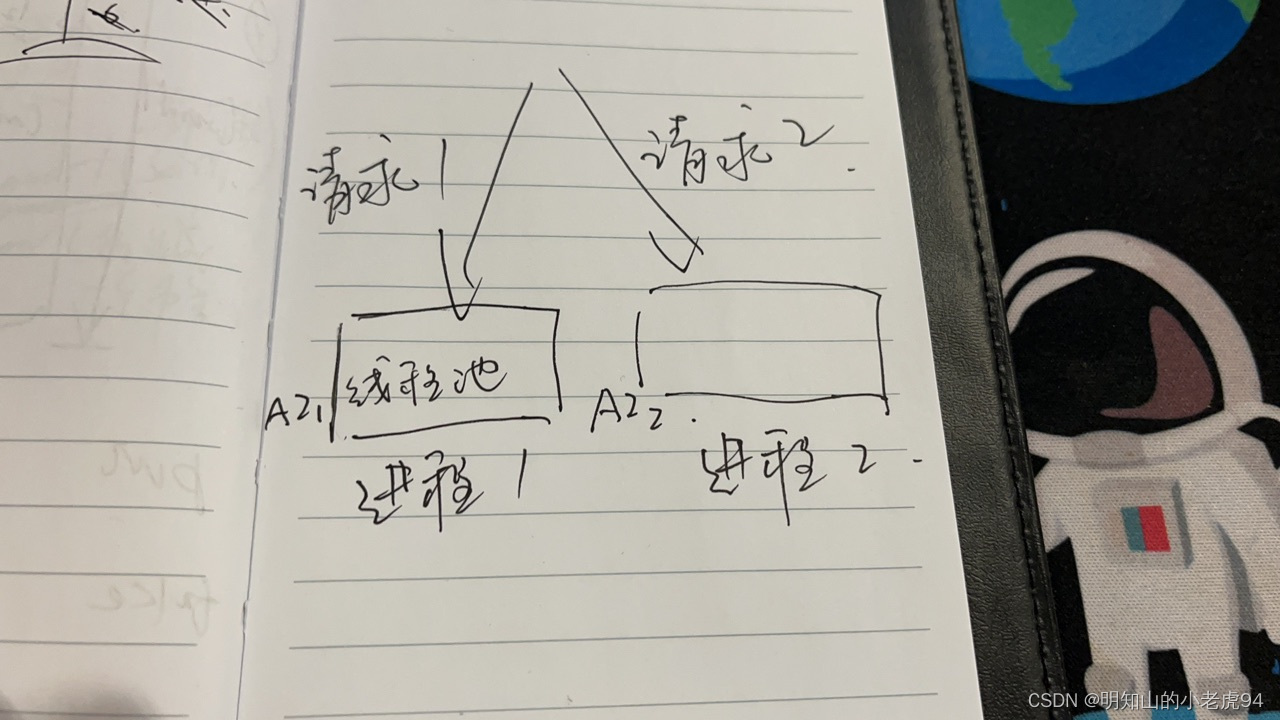 请求1
请求2.
线程池
AZ1
AZ2.
进程1
进程2.
CSDN @明知山的小老虎94